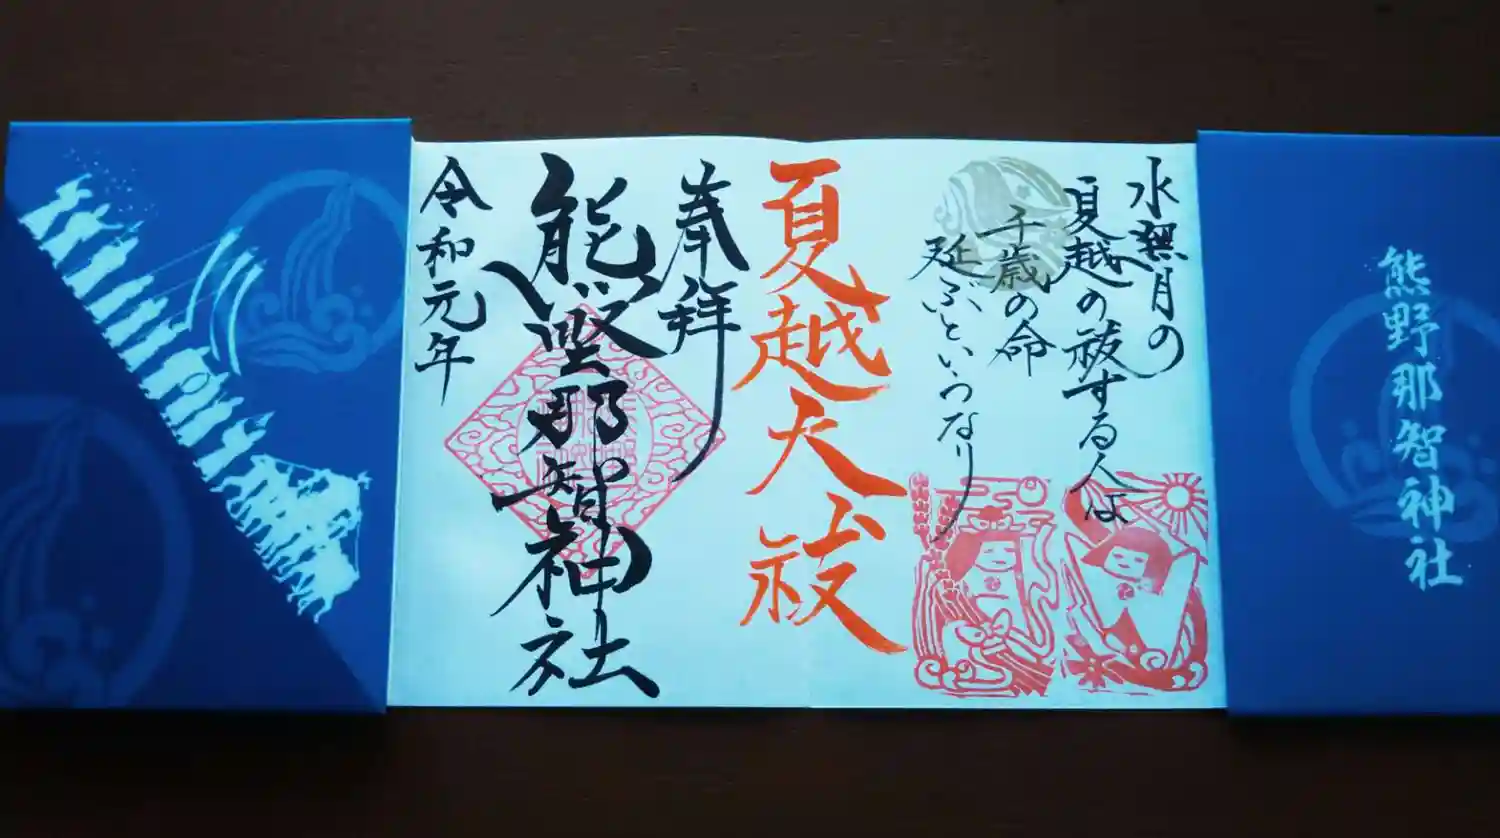 熊野那智神社
水無月の
夏越の祓する人は
千歳の命
延ぶといふなり
夏越大祓
奉拝
熊野那智神社
令和元年